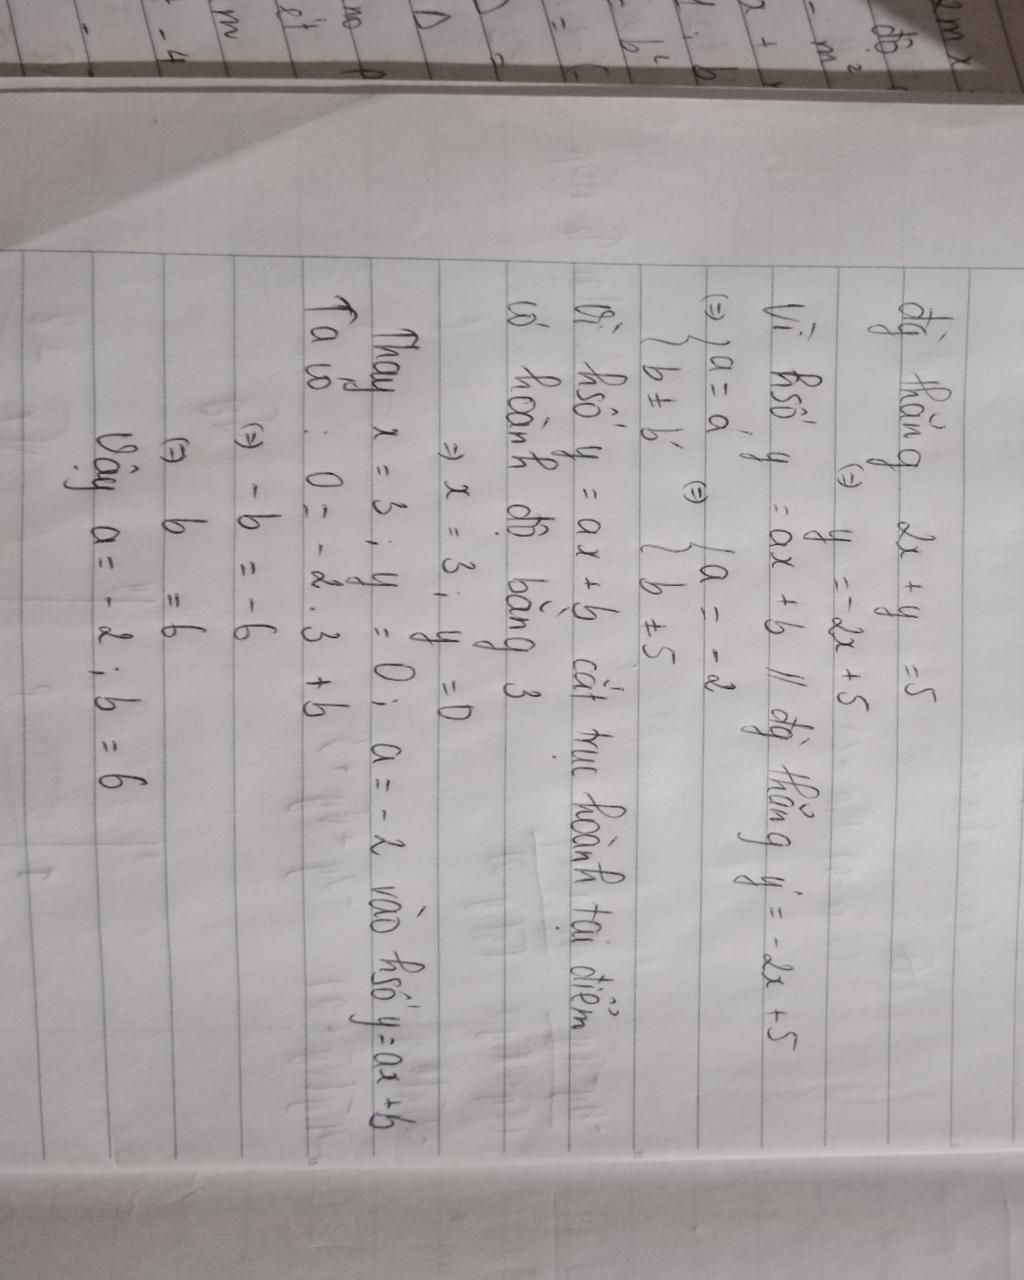 đg thẳng 2x + y = 5
(=) y = -2x + 5
Vì hsố y = ax + b // đg thẳng y' = -2x + 5
(=) { a = a' (=) { a = -2
{ b ± b' { b ± 5
Vì hsố y = ax + b cắt trục hoành tại điểm
có hoành độ bằng 3
=) x = 3 ; y = 0
Thay x = 3 ; y = 0 ; a = -2 vào hsố y = ax + b
Ta có : 0 = -2 . 3 + b
(=) - b = - 6
(=) b = 6
Vậy a = -2 ; b = 6